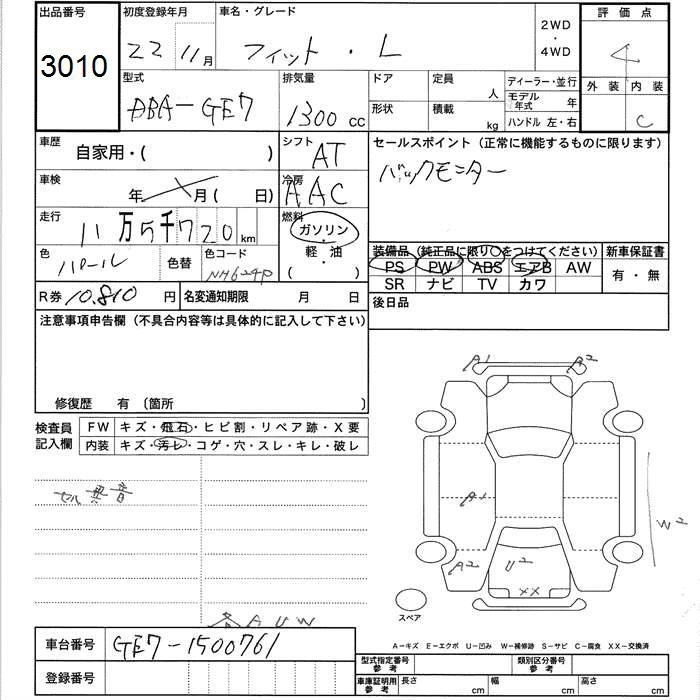 出品番号 初度登録年月 車名・グレード 2WD・4WD 評価点
3010 22 11月 フィット・L 4
型式 排気量 ドア 定員 人 ディーラー・並行 外装 内装
DBA-GE7 1300cc 形状 積載 kg モデル年式 年 C
ハンドル 左・右
車歴 自家用・( ) シフト AT セールスポイント (正常に機能するものに限ります)
車検 年 月( 日) 冷房 AAC バックモニター
走行 11万5千720km 燃料 ガソリン・軽油 ( )
色 パール 色替 色コード NH624P
装備品 (純正品に限り○をつけてください) 新車保証書
PS PW ABS エアB AW 有・無
SR ナビ TV カワ
R券 10.810円 名変通知期限 月 日 後日品
注意事項申告欄 (不具合内容等は具体的に記入して下さい)
修復歴 有 〔箇所 〕
検査員記入欄 FW キズ・飛石・ヒビ割・リペア跡・X要
内装 キズ・汚レ・コゲ・穴・スレ・キレ・破レ
A1 A2
セル異音
A1
W2
A2 U2
XX
スペア
各AUW
車台番号 GE7-1500761
A-キズ E-エクボ U-凹み W-補修跡 S-サビ C-腐食 XX-交換済
登録番号
型式指定番号参考 類別区分番号参考
車庫証明用参考 長さ cm 幅 cm 高さ cm